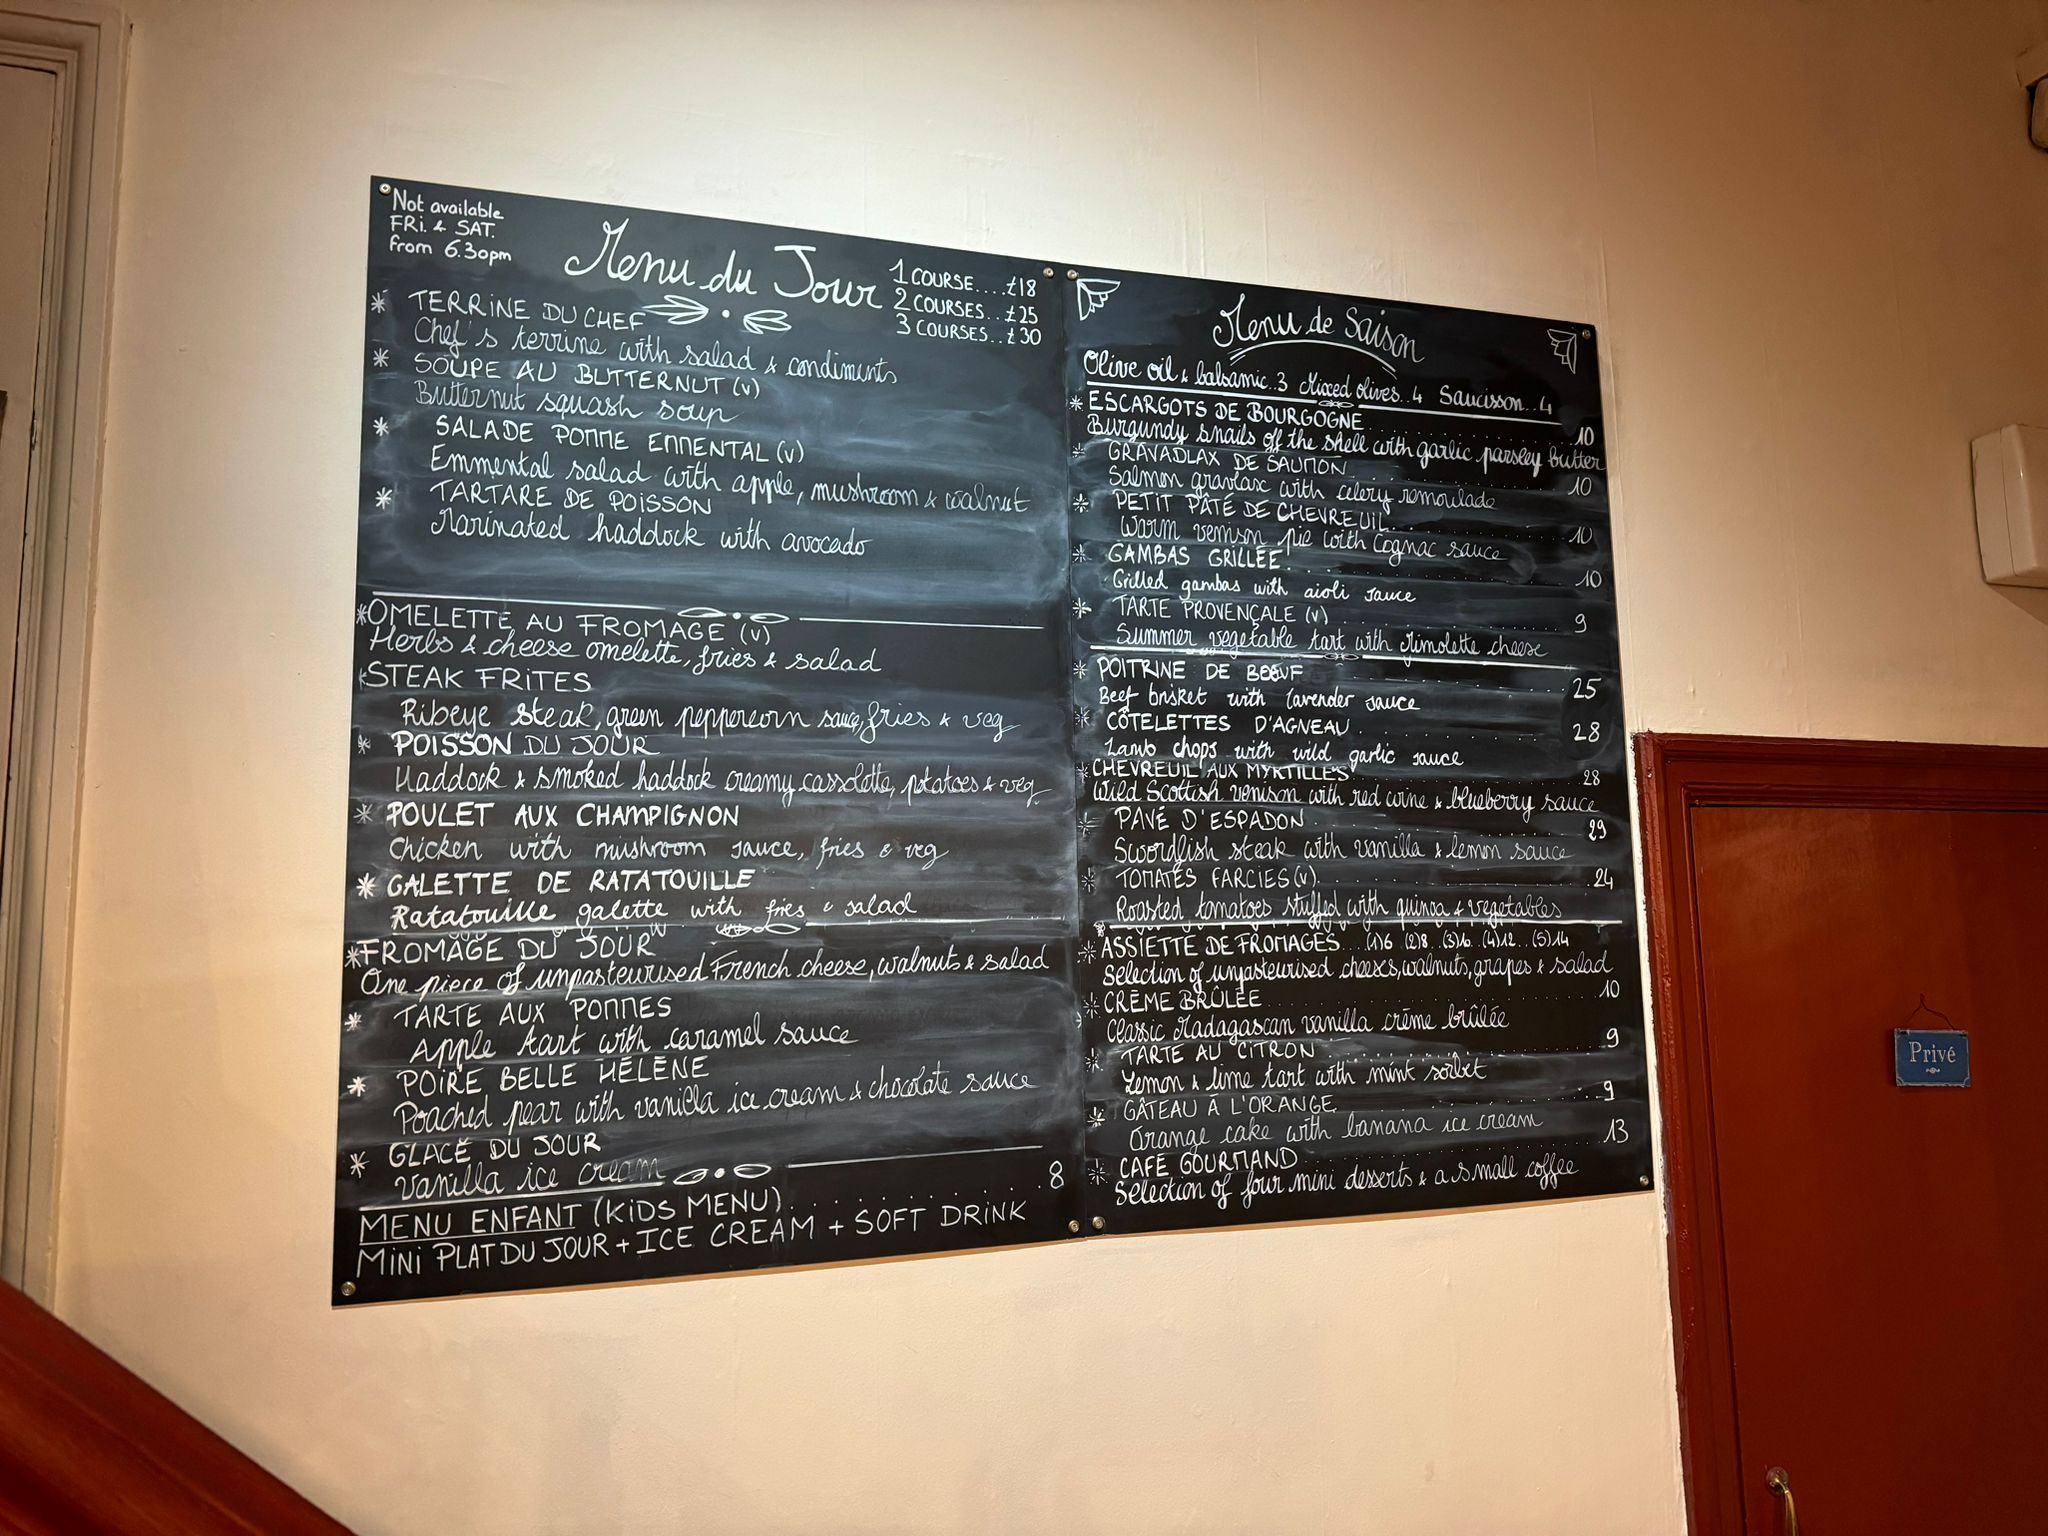 Not available
FRi. & SAT.
from 6.30pm
Menu du Jour
1 COURSE....£18
2 COURSES..£25
3 COURSES..£30
* TERRINE DU CHEF
Chef's terrine with salad & condiments
* SOUPE AU BUTTERNUT (v)
Butternut squash soup
* SALADE POMME EMMENTAL (v)
Emmental salad with apple, mushroom & walnut
* TARTARE DE POISSON
Marinated haddock with avocado
* OMELETTE AU FROMAGE (v)
Herbs & cheese omelette, fries & salad
* STEAK FRITES
Ribeye steak, green peppercorn sauce, fries & veg
* POISSON DU JOUR
Haddock & smoked haddock creamy cassolette, potatoes & veg
* POULET AUX CHAMPIGNON
Chicken with mushroom sauce, fries & veg
* GALETTE DE RATATOUILLE
Ratatouille galette with fries & salad
* FROMAGE DU JOUR
One piece of unpasteurised French cheese, walnuts & salad
* TARTE AUX POMMES
Apple tart with caramel sauce
* POIRE BELLE HÉLÈNE
Poached pear with vanilla ice cream & chocolate sauce
* GLACE DU JOUR
Vanilla ice cream
MENU ENFANT (KiDS MENU)..........8
MiNi PLAT DU JOUR + ICE CREAM + SOFT DRINK
Menu de Saison
Olive oil & balsamic..3 Mixed olives..4 Saucisson..4
* ESCARGOTS DE BOURGOGNE 10
Burgundy snails off the shell with garlic parsley butter
* GRAVADLAX DE SAUMON 10
Salmon gravlax with celery remoulade
* PETIT PÂTÉ DE CHEVREUIL 10
Warm venison pie with Cognac sauce
* GAMBAS GRILLÉE 10
Grilled gambas with aioli sauce
* TARTE PROVENÇALE (v) 9
Summer vegetable tart with Mimolette cheese
* POITRINE DE BOEUF 25
Beef brisket with lavender sauce
* CÔTELETTES D'AGNEAU 28
Lamb chops with wild garlic sauce
* CHEVREUIL AUX MYRTILLES 28
Wild Scottish venison with red wine & blueberry sauce
* PAVÉ D'ESPADON 29
Swordfish steak with vanilla & lemon sauce
* TOMATES FARCIES (v) 24
Roasted tomatoes stuffed with quinoa & vegetables
* ASSIETTE DE FROMAGES ...(1)6 (2)8 ..(3)10 ..(4)12 ..(5)14
Selection of unpasteurised cheeses, walnuts, grapes & salad
* CRÈME BRÛLÉE 10
Classic Madagascan vanilla crème brûlée
* TARTE AU CITRON 9
Lemon & lime tart with mint sorbet
* GÂTEAU À L'ORANGE 9
Orange cake with banana ice cream
* CAFÉ GOURMAND 13
Selection of four mini desserts & a small coffee
Privé